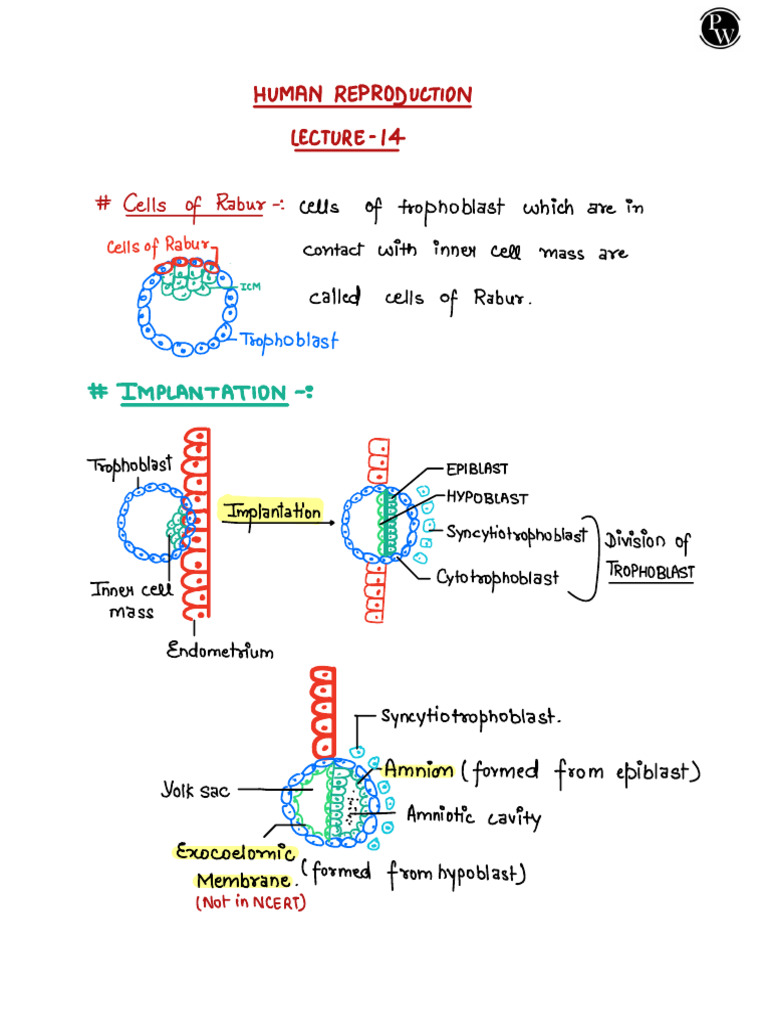 PW
HUMAN REPRODUCTION
LECTURE-14
# Cells of Rabur -: cells of trophoblast which are in
contact with inner cell mass are
called cells of Rabur.
Cells of Rabur
ICM
Trophoblast
# IMPLANTATION -:
Trophoblast
Inner cell
mass
Endometrium
Implantation
EPIBLAST
HYPOBLAST
Syncytiotrophoblast
Cytotrophoblast
Division of
TROPHOBLAST
Syncytiotrophoblast.
Amnion (formed from epiblast)
Yolk sac
Amniotic cavity
Exocoelomic
Membrane. (formed from hypoblast)
(Not in NCERT)